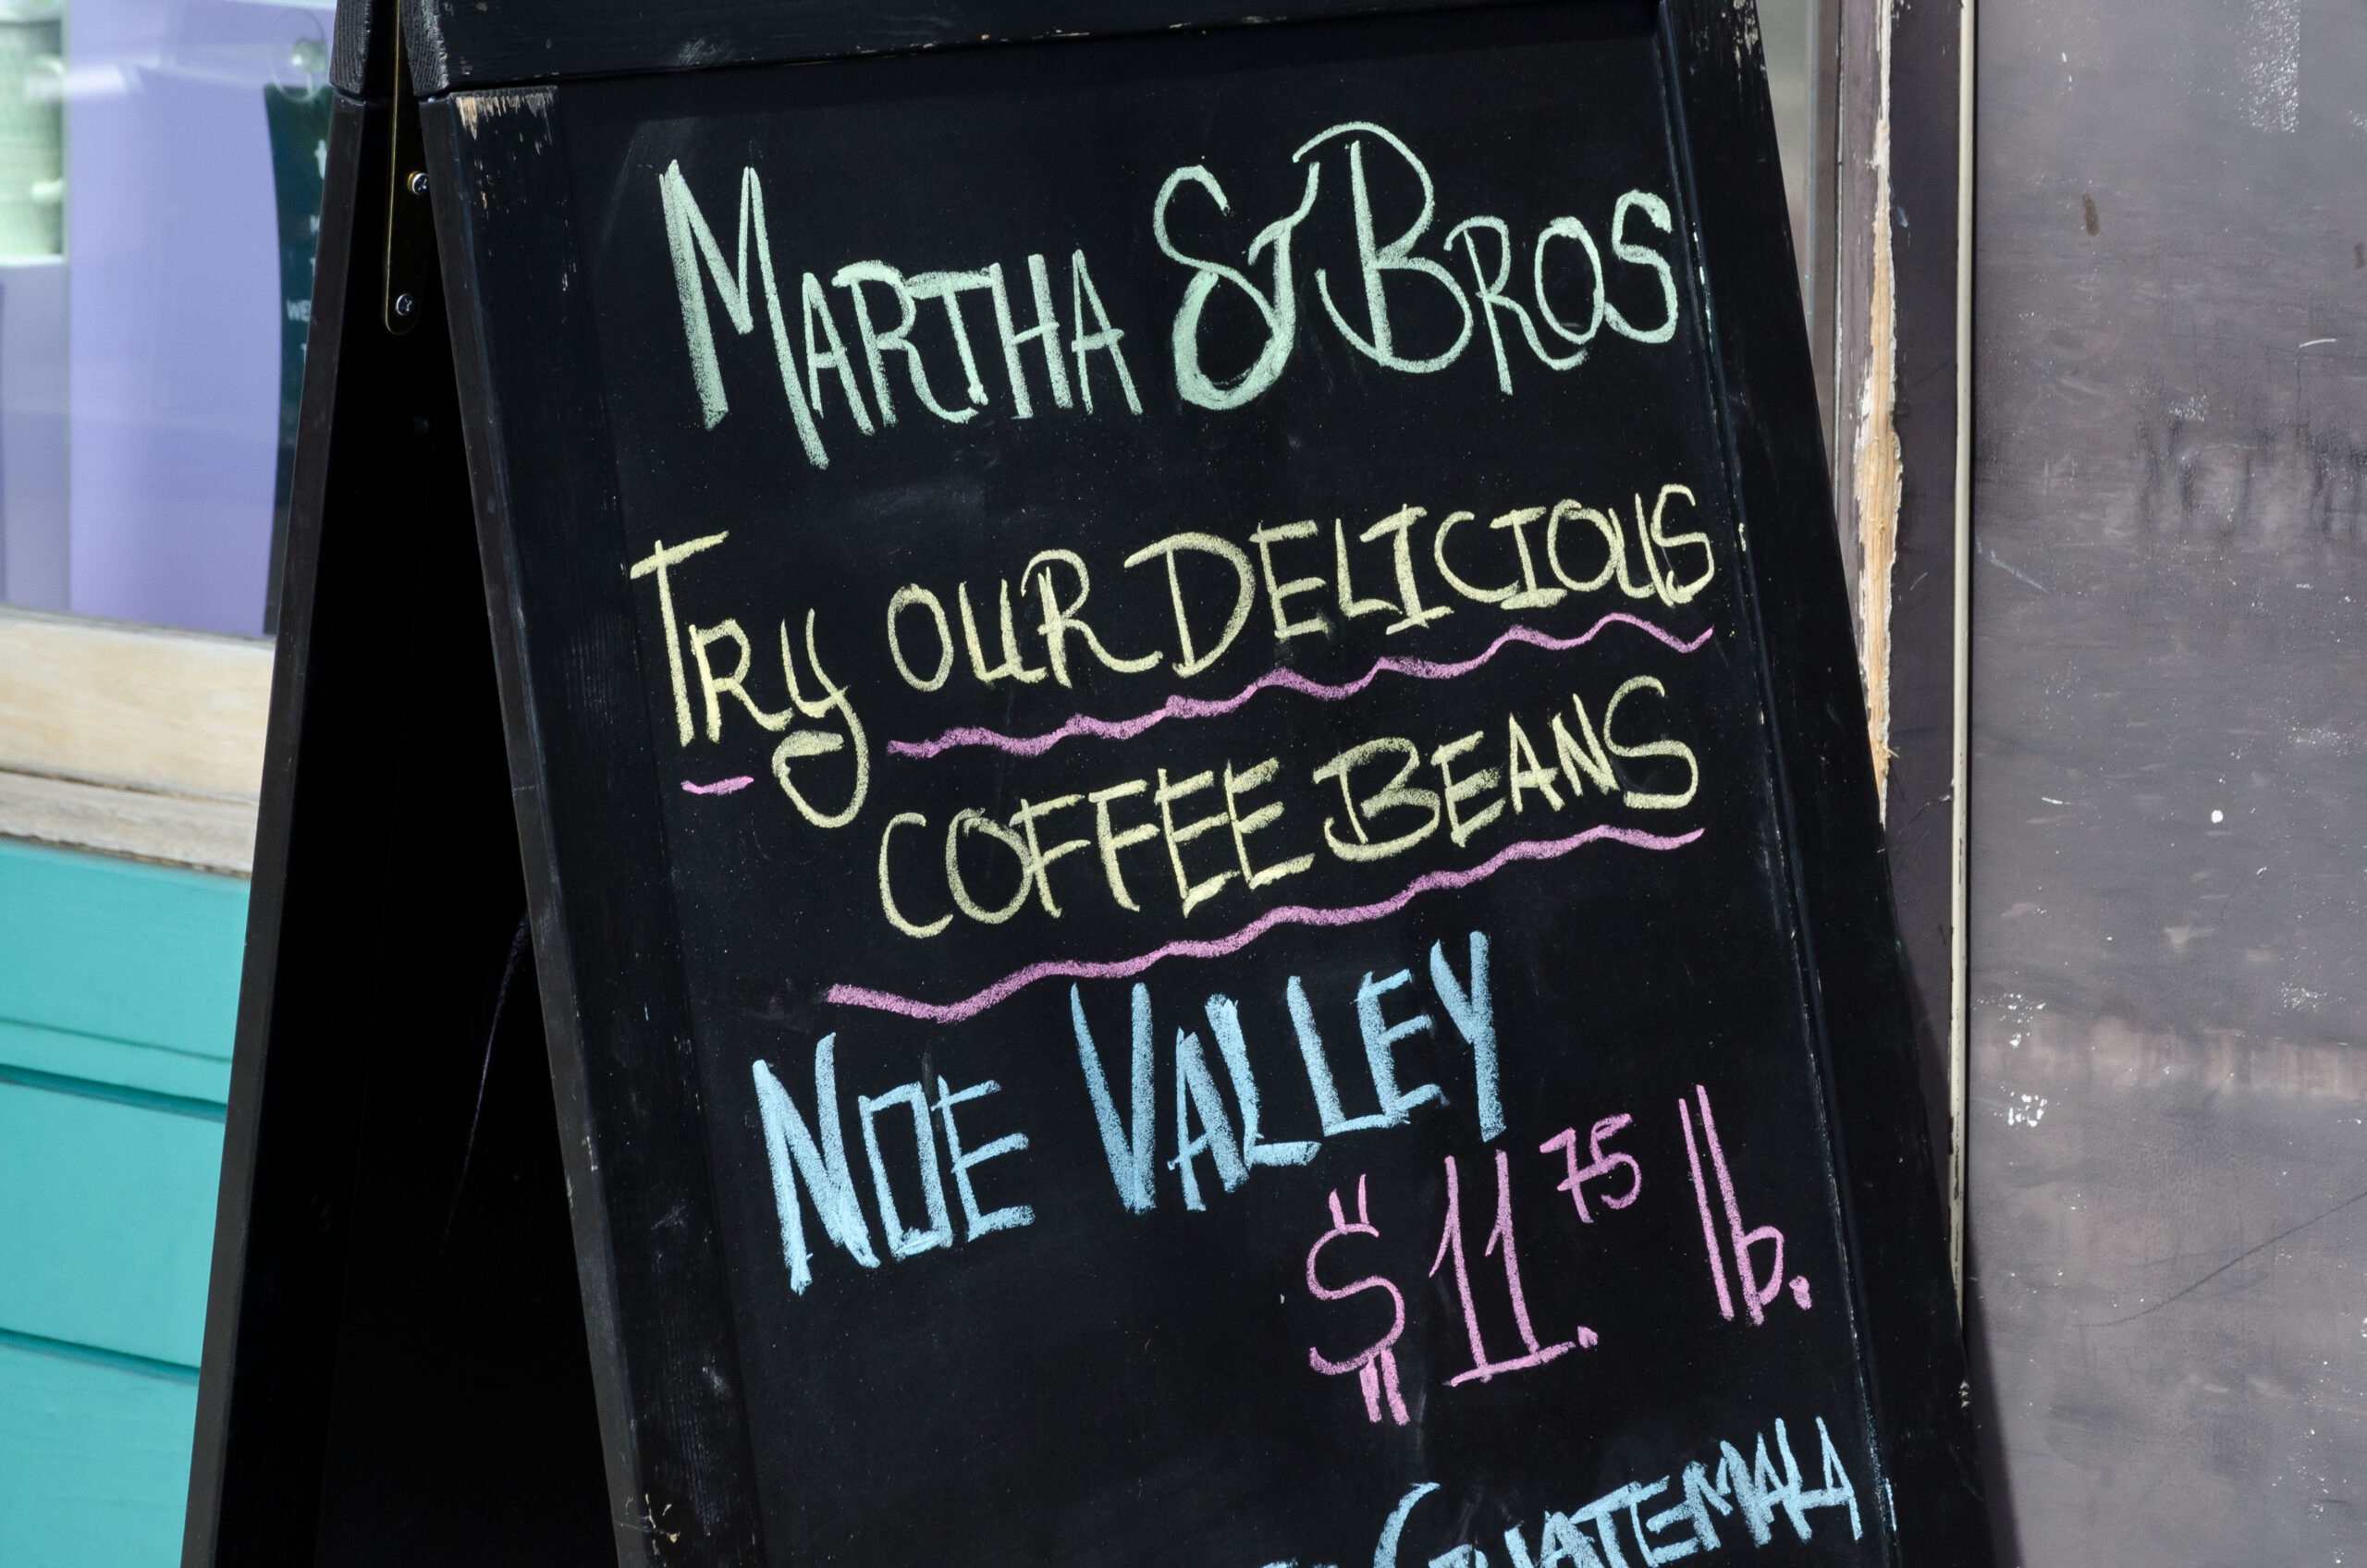 MARTHA & BROS
TRY OUR DELICIOUS
COFFEE BEANS
NOE VALLEY
$11.75 lb.
GUATEMALA